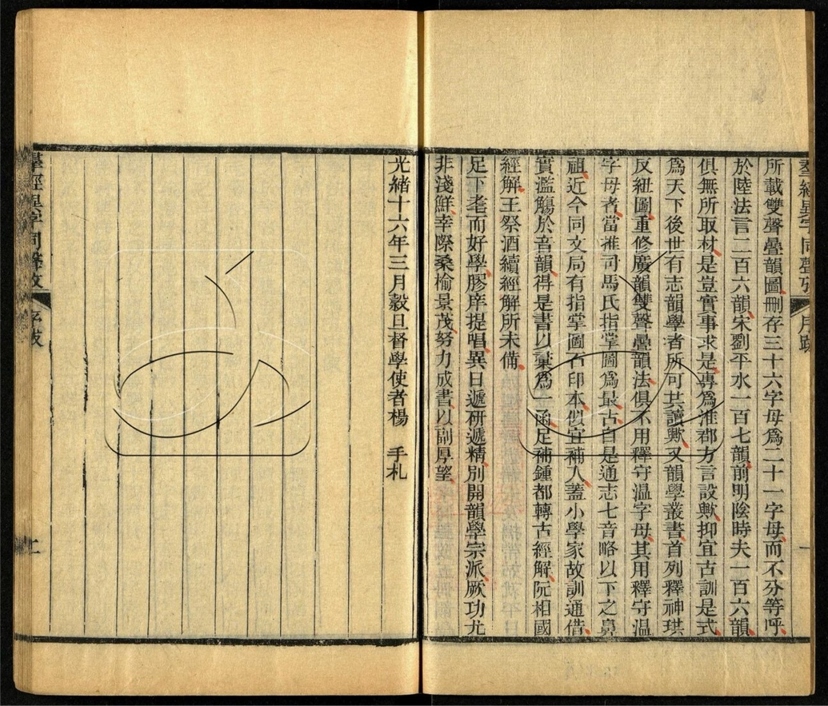 羣經異字同聲攷 序跋 一
所載雙聲疊韻圖刪存三十六字母爲二十一字母而不分等呼
於陸法言二百六韻宋劉平水一百七韻前明陰時夫一百六韻
俱無所取材是豈實事求是專爲淮郡方言設歟抑宜古訓是式
爲天下後世有志韻學者所可共讀歟又韻學叢書首列釋神珙
反紐圖重修廣韻雙聲疊韻法俱不用釋守溫字母其用釋守溫
字母者當推司馬氏指掌圖爲最古自是通志七音略以下之鼻
祖近今同文局有指掌圖石印本似宜補入蓋小學家故訓通借
實濫觴於音韻得是書以彙爲一函足補鍾都轉古經解阮相國
經解王祭酒續經解所未備
足下耄而好學膠庠提唱異日遞研遞精別開韻學宗派厥功尤
非淺鮮幸際桑榆景茂努力成書以副厚望
光緒十六年三月穀旦督學使者楊 手札
羣經異字同聲攷 序跋 二